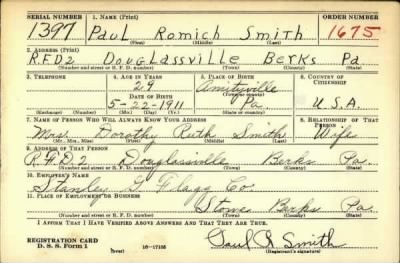 SERIAL NUMBER 1. NAME (Print) ORDER NUMBER
1397 Paul Romich Smith 1675
(First) (Middle) (Last)
2. ADDRESS (Print)
R.F.D 2 Douglassville Berks Pa
(Number and street or R. F. D. number) (Town) (County) (State)
3. TELEPHONE 4. AGE IN YEARS 5. PLACE OF BIRTH 6. COUNTRY OF CITIZENSHIP
29 Amityville
DATE OF BIRTH (Town or county)
5-22-1911 Pa. U.S.A.
(Exchange) (Number) (Mo.) (Day) (Yr.) (State or country)
7. NAME OF PERSON WHO WILL ALWAYS KNOW YOUR ADDRESS 8. RELATIONSHIP OF THAT PERSON
Mrs. Dorothy Ruth Smith Wife
(Mr., Mrs., Miss) (First) (Middle) (Last)
9. ADDRESS OF THAT PERSON
R.F.D. 2 Douglassville Berks Pa.
(Number and street or R. F. D. number) (Town) (County) (State)
10. EMPLOYER'S NAME
Stanley G. Flagg Co.
11. PLACE OF EMPLOYMENT OR BUSINESS
Stowe Berks Pa.
(Number and street or R. F. D. number) (Town) (County) (State)
I AFFIRM THAT I HAVE VERIFIED ABOVE ANSWERS AND THAT THEY ARE TRUE.
REGISTRATION CARD
D. S. S. Form 1 (over) 16-17105 Paul R Smith
(Registrant's signature)